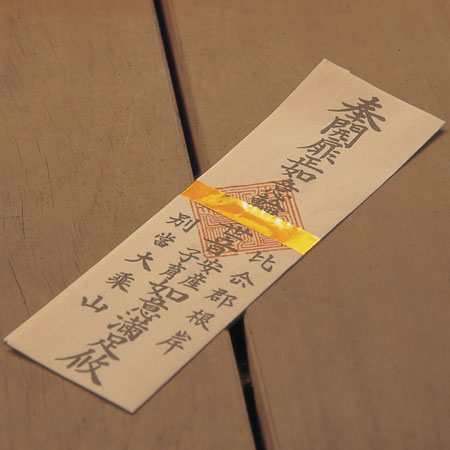 比企郡根岸
奉開扉正如意輪世音
安産
子育
如意満足攸
別當大乗山